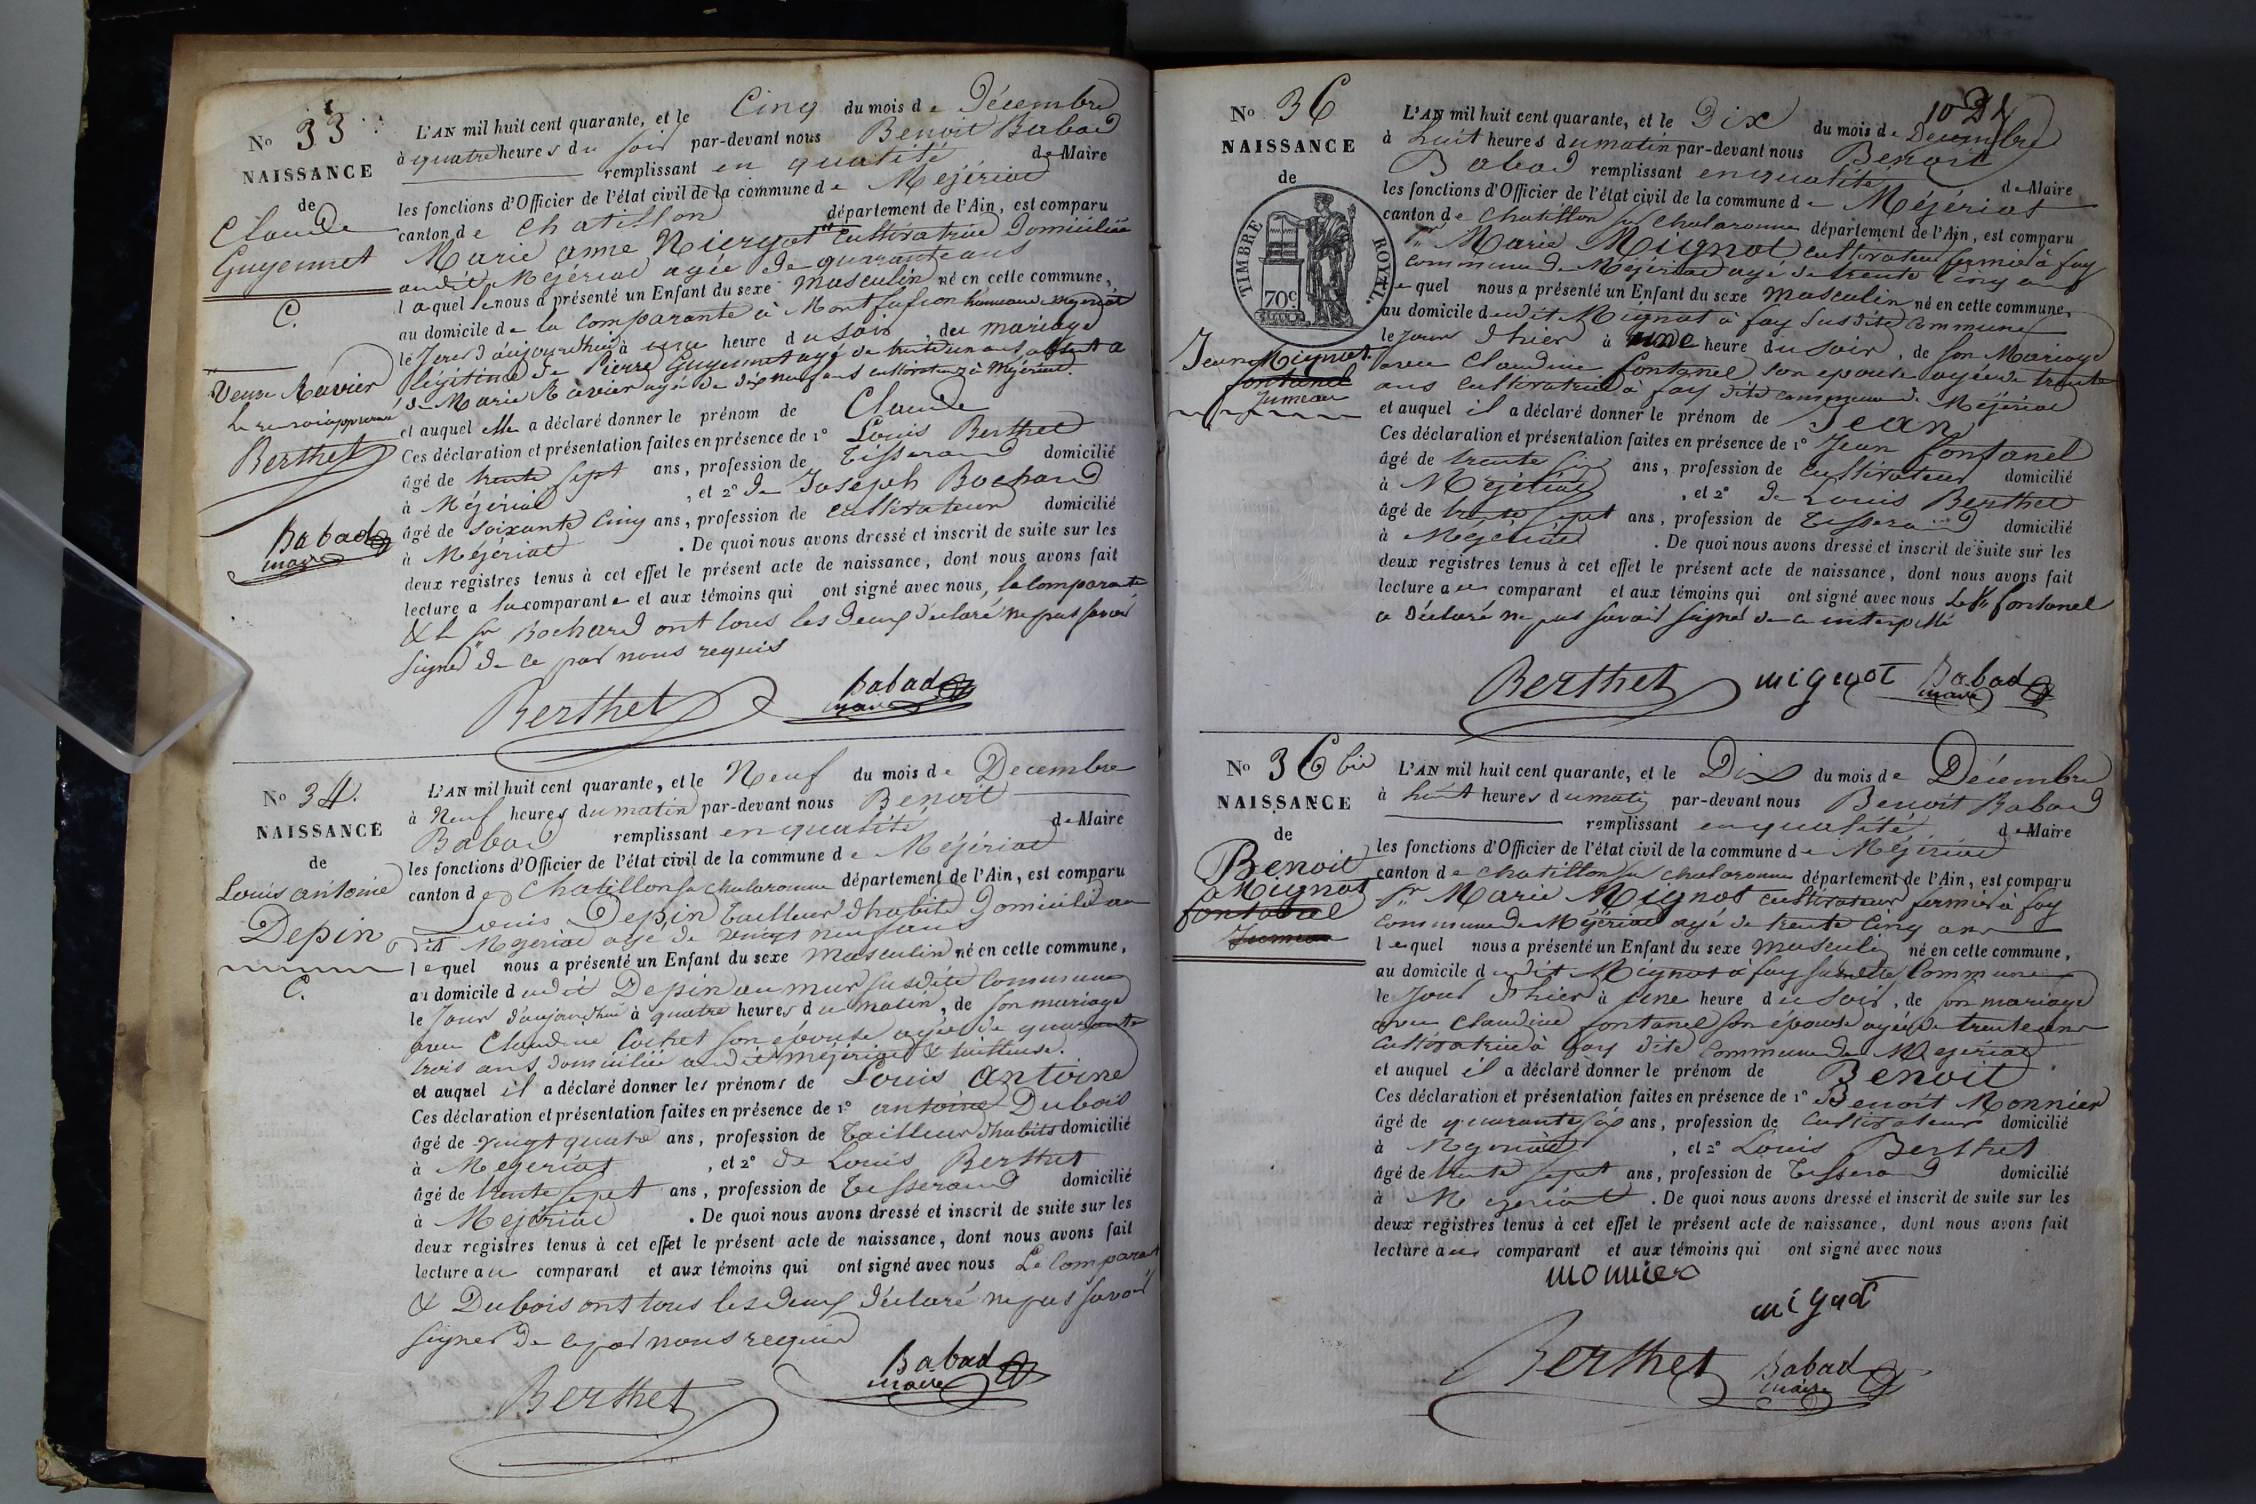 No 33
NAISSANCE
de
Claude
Guyennet
C.
Veuve Ravier
Berthet
Babad
maire
L'AN mil huit cent quarante, et le Cinq du mois de Décembre
à quatre heures du soir par-devant nous Benoit Babad
remplissant en qualité de Maire
les fonctions d'Officier de l'état civil de la commune de Mézériat
canton de Chatillon département de l'Ain, est comparu
Marie anne cultivatrice domiciliée
audit Mézériat agée de quarante ans
laquelle nous a présenté un Enfant du sexe masculin né en cette commune,
au domicile de la comparante à hameau de Mézériat
le jour d'aujourdhui à une heure du soir, du mariage
légitime de Pierre Guyennet agé de trente un ans absent
de Marie Ravier agée de dix neuf ans cultivateurs à Mézériat.
et auquel elle a déclaré donner le prénom de Claude
Ces déclaration et présentation faites en présence de 1° Louis Berthet
âgé de trente sept ans, profession de Tisserand domicilié
à Mézériat, et 2° de Joseph Bochard
âgé de soixante Cinq ans, profession de cultivateur domicilié
à Mézériat. De quoi nous avons dressé et inscrit de suite sur les
deux registres tenus à cet effet le présent acte de naissance, dont nous avons fait
lecture a la comparante et aux témoins qui ont signé avec nous, la comparante
& le sr Bochard ont tous les deux déclaré ne pas savoir
signer de ce par nous requis
Berthet Babad
maire
No 34.
NAISSANCE
de
Louis antoine
Depin
C.
L'AN mil huit cent quarante, et le Neuf du mois de Décembre
à Neuf heures du matin par-devant nous Benoit
Babad remplissant en qualité de Maire
les fonctions d'Officier de l'état civil de la commune de Mézériat
canton de Chatillon sr Chalaronne département de l'Ain, est comparu
Louis Depin tailleur d'habits domicilié au
dit Mézériat agé de vingt neuf ans
lequel nous a présenté un Enfant du sexe masculin né en cette commune,
au domicile dudit Depin au mur susdite Commune
le Jour d'aujourdhui à quatre heures du matin, de son mariage
avec Claudine Cochet son épouse agée de quarante
trois ans domiciliée audit Mézériat & tailleuse.
et auquel il a déclaré donner les prénoms de Louis Antoine
Ces déclaration et présentation faites en présence de 1° antoine Dubois
âgé de vingt quatre ans, profession de Tailleur d'habits domicilié
à Mézériat, et 2° de Louis Berthet
âgé de trente sept ans, profession de Tisserand domicilié
à Mézériat. De quoi nous avons dressé et inscrit de suite sur les
deux registres tenus à cet effet le présent acte de naissance, dont nous avons fait
lecture au comparant et aux témoins qui ont signé avec nous Le Comparant
& Dubois ont tous les deux déclaré ne pas savoir
signer de ce par nous requis
Berthet Babad
maire
No 36
NAISSANCE
de
TIMBRE ROYAL.
70c
Jean Mignot
fontanel
Jumeau
L'AN mil huit cent quarante, et le Dix du mois de Décembre
à huit heures du matin par-devant nous Benoit
Babad remplissant en qualité de Maire
les fonctions d'Officier de l'état civil de la commune de Mézériat
canton de Chatillon sur Chalaronne département de l'Ain, est comparu
sr Marie Mignot cultivateur fermier à fay
commune de Mézériat agé de trente Cinq ans
lequel nous a présenté un Enfant du sexe masculin né en cette commune,
au domicile dudit Mignot à fay susdite Commune
le jour d'hier à une heure du soir, de son Mariage
avec Claudine fontanel son épouse agée de trente
ans cultivatrice à fay dite commune de Mézériat
et auquel il a déclaré donner le prénom de Jean
Ces déclaration et présentation faites en présence de 1° Jean fontanel
âgé de trente six ans, profession de cultivateur domicilié
à Mézériat, et 2° de Louis Berthet
âgé de trente sept ans, profession de Tisserand domicilié
à Mézériat. De quoi nous avons dressé et inscrit de suite sur les
deux registres tenus à cet effet le présent acte de naissance, dont nous avons fait
lecture au comparant et aux témoins qui ont signé avec nous Le sr fontanel
a déclaré ne pas savoir signer de ce interpellé
Berthet mignot Babad
maire
No 36 bis
NAISSANCE
de
Benoit
Mignot
fontanel
Jumeau
L'AN mil huit cent quarante, et le Dix du mois de Décembre
à huit heures du matin par-devant nous Benoit Babad
remplissant en qualité de Maire
les fonctions d'Officier de l'état civil de la commune de Mézériat
canton de Chatillon sur Chalaronne département de l'Ain, est comparu
sr Marie Mignot cultivateur fermier à fay
commune de Mézériat agé de trente Cinq ans
lequel nous a présenté un Enfant du sexe masculin né en cette commune,
au domicile dudit Mignot à fay susdite Commune
le Jour d'hier à une heure du soir, de son mariage
avec Claudine fontanel son épouse agée de trente ans
cultivatrice à fay dite Commune de Mézériat
et auquel il a déclaré donner le prénom de Benoit
Ces déclaration et présentation faites en présence de 1° Benoit Monnier
âgé de quarante six ans, profession de cultivateur domicilié
à Mézériat, et 2° Louis Berthet
âgé de trente sept ans, profession de Tisserand domicilié
à Mézériat. De quoi nous avons dressé et inscrit de suite sur les
deux registres tenus à cet effet le présent acte de naissance, dont nous avons fait
lecture au comparant et aux témoins qui ont signé avec nous
monnier
mignot
Berthet Babad
maire